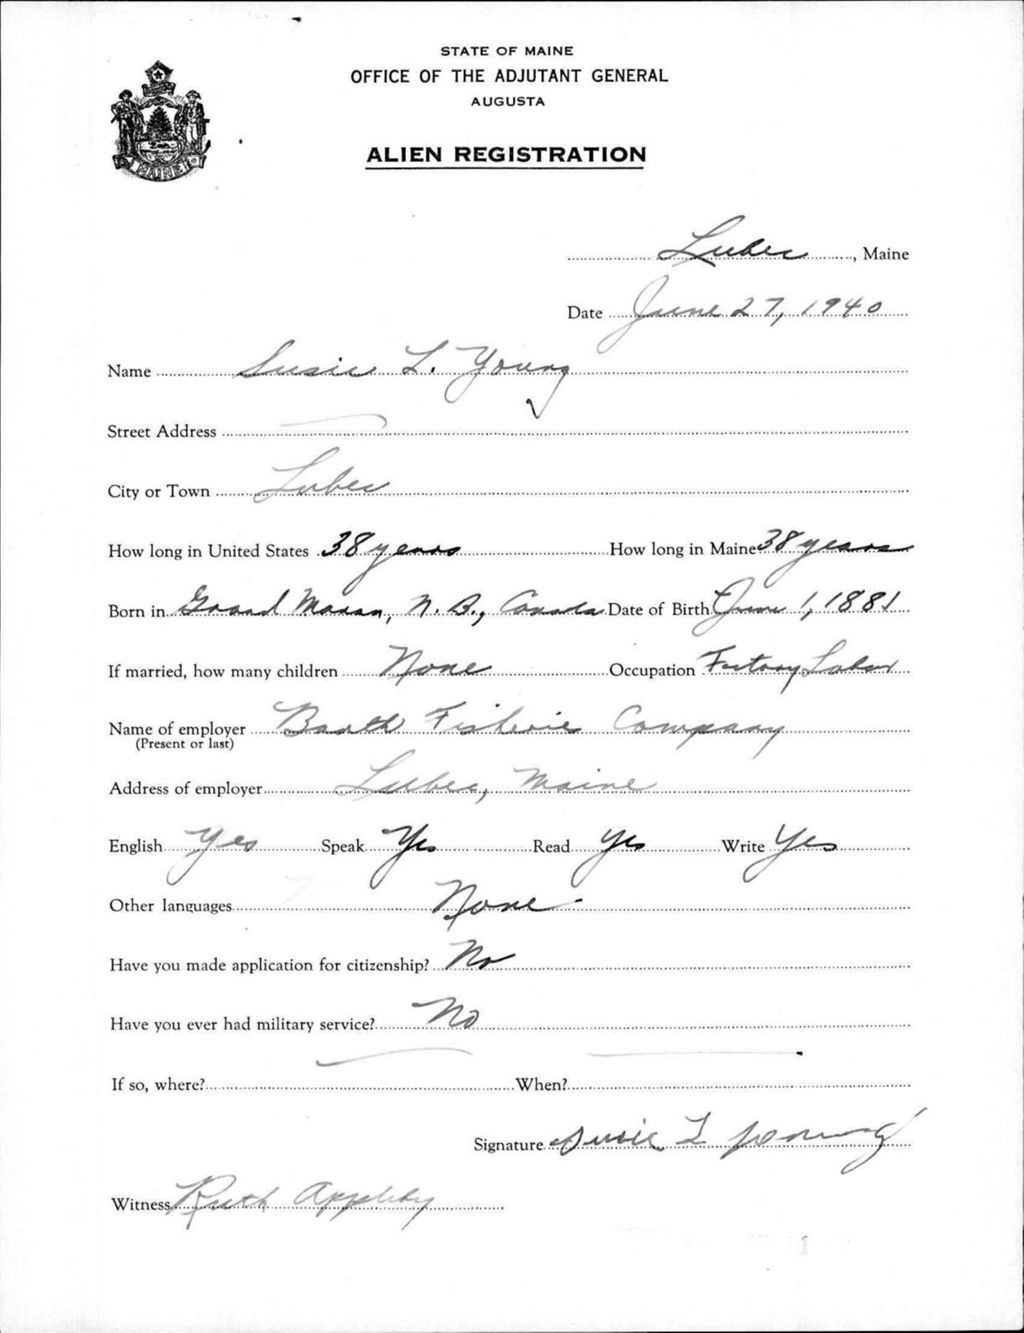 STATE OF MAINE
OFFICE OF THE ADJUTANT GENERAL
AUGUSTA
ALIEN REGISTRATION
MAINE
Lubec, Maine
Date June 27, 1940
Name Susie L. Young
Street Address
City or Town Lubec
How long in United States 38 years How long in Maine 38 years
Born in Grand Manan, N. B., Canada Date of Birth June 1, 1881
If married, how many children None Occupation Factory Labor
Name of employer Booth Fisherie Company
(Present or last)
Address of employer Lubec, Maine
English Yes Speak Yes Read Yes Write Yes
Other languages None
Have you made application for citizenship? No
Have you ever had military service? No
If so, where? When?
Signature Susie L Young
Witness Ruth Appleby